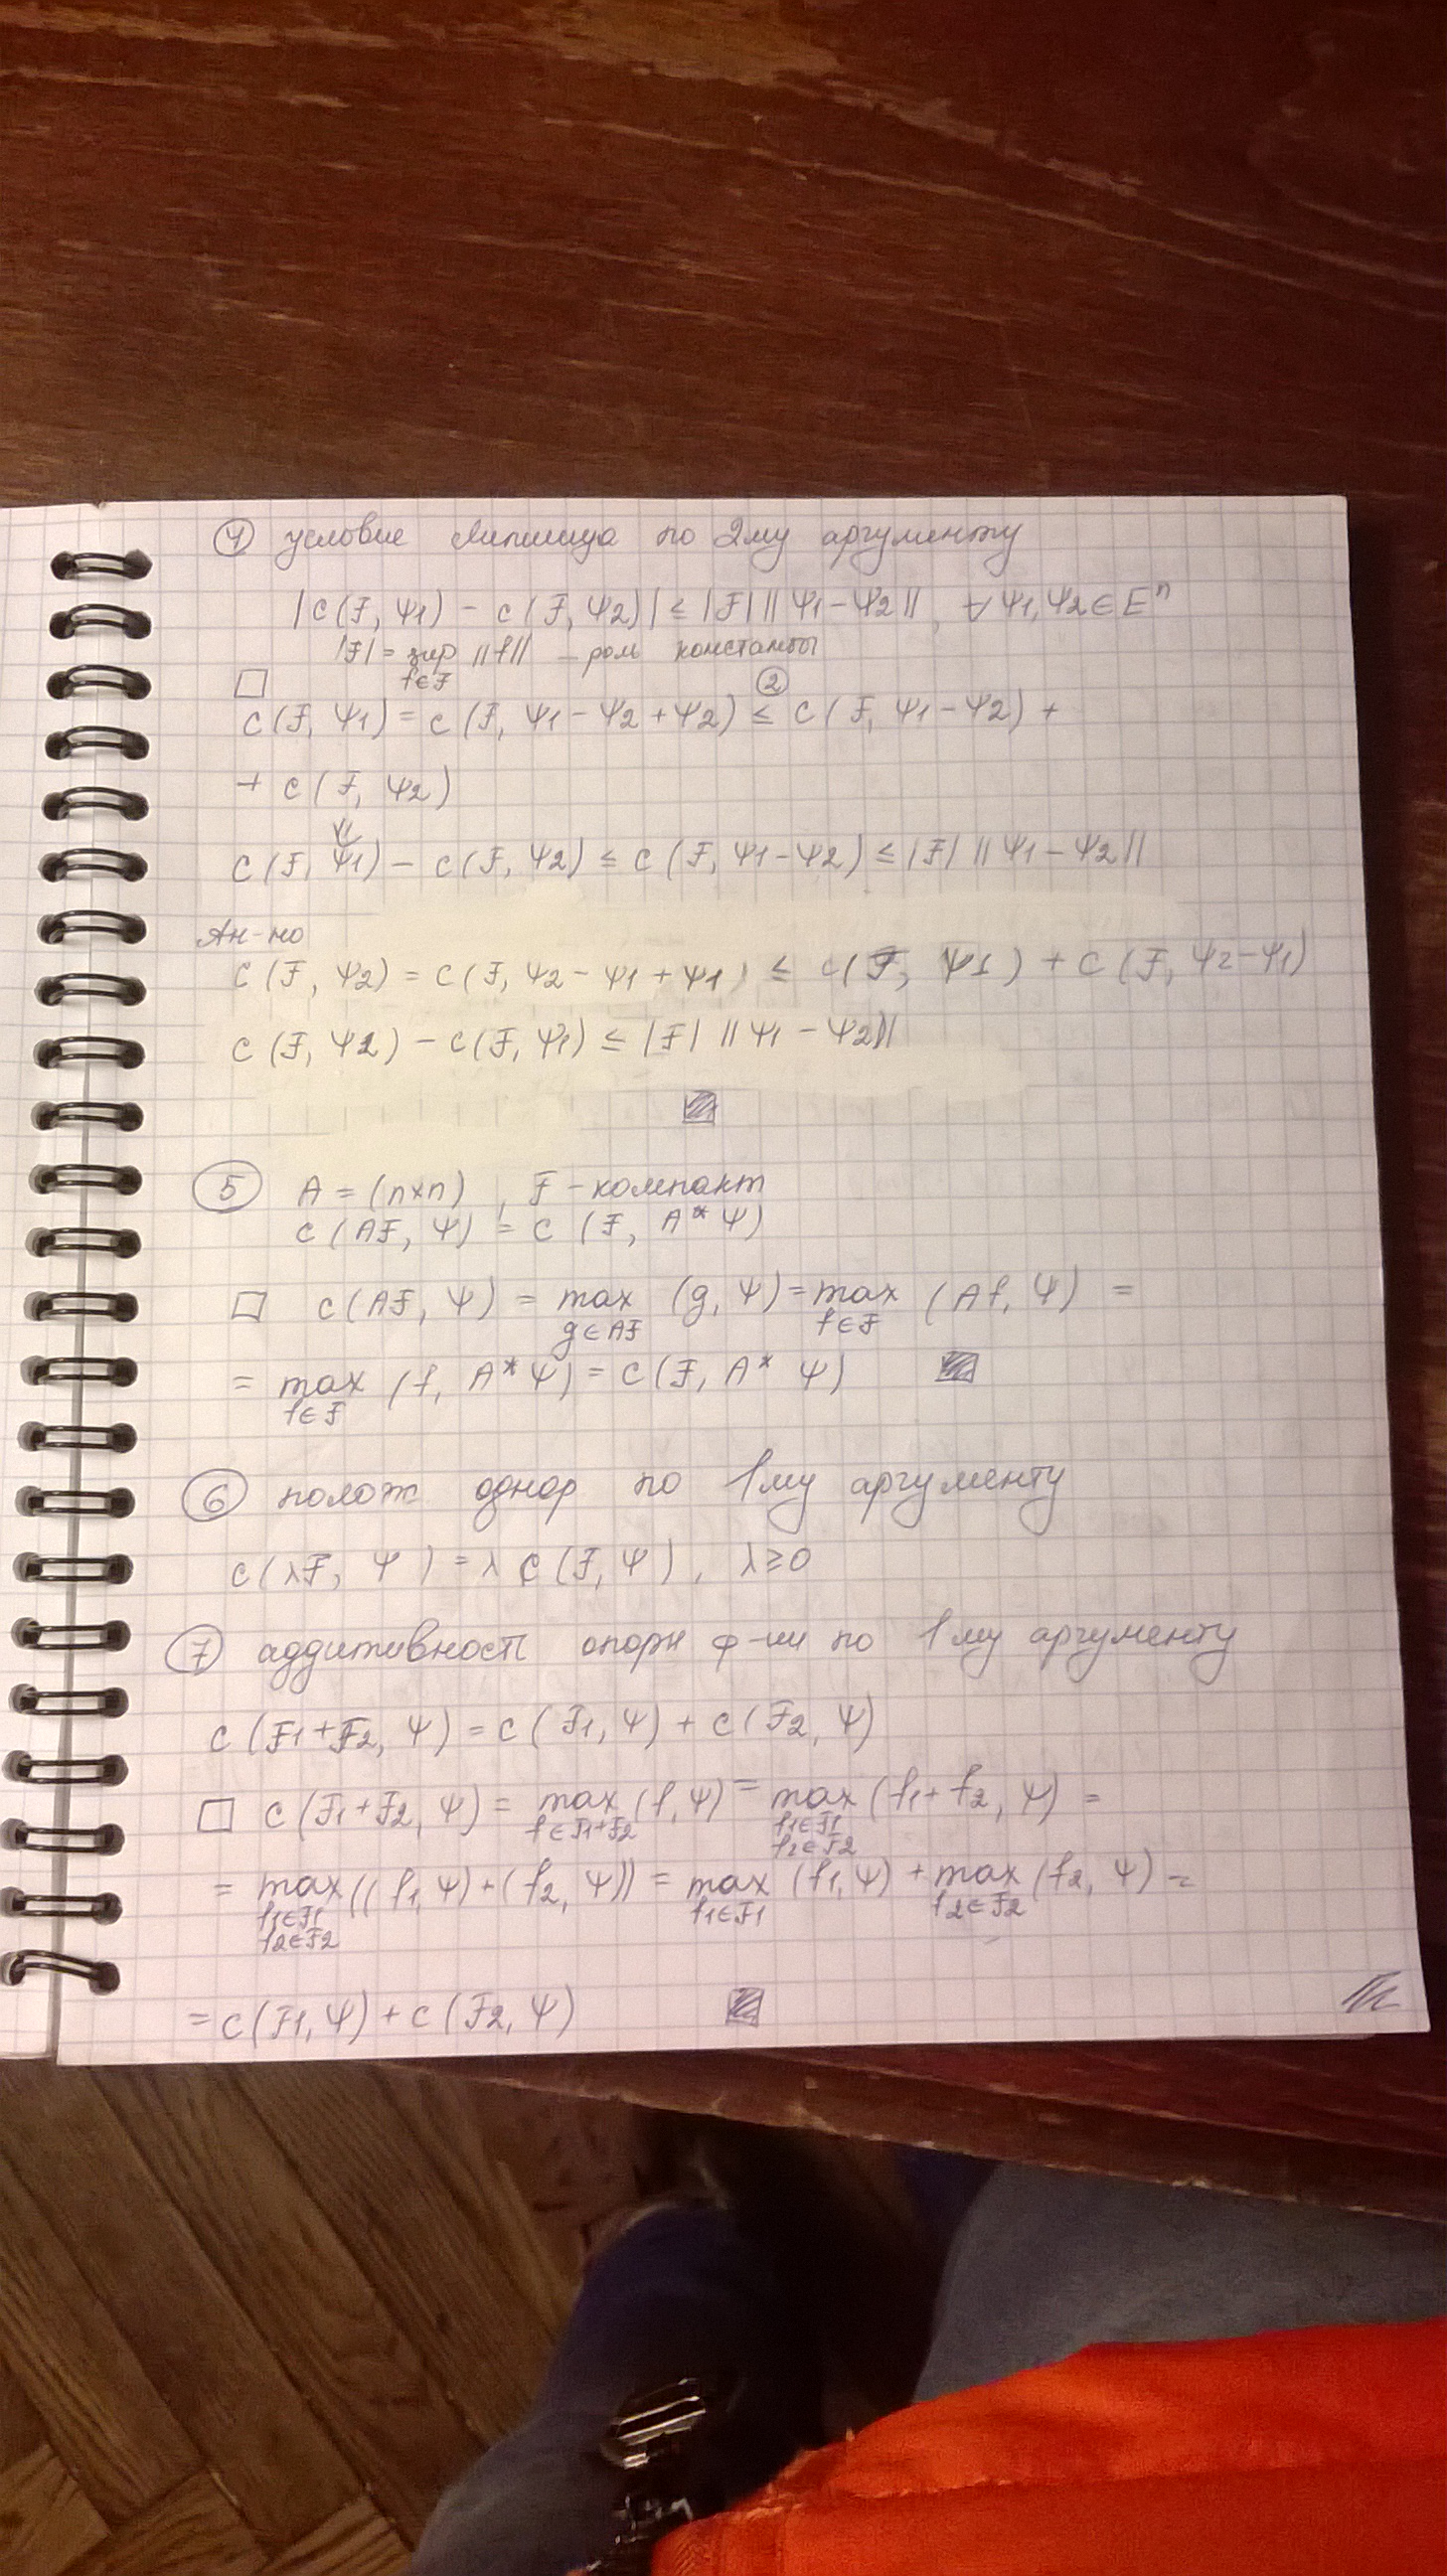 ④ условие Липшица по 2му аргументу
|c(F, Ψ1) - c(F, Ψ2)| ≤ |F| ||Ψ1 - Ψ2||, ∀ Ψ1, Ψ2 ∈ Eⁿ
|F| = sup ||f|| - роль константы
f∈F
□ ②
c(F, Ψ1) = c(F, Ψ1 - Ψ2 + Ψ2) ≤ c(F, Ψ1 - Ψ2) +
+ c(F, Ψ2)
⇓
c(F, Ψ1) - c(F, Ψ2) ≤ c(F, Ψ1 - Ψ2) ≤ |F| ||Ψ1 - Ψ2||
Ан-но
c(F, Ψ2) = c(F, Ψ2 - Ψ1 + Ψ1) ≤ c(F, Ψ1) + c(F, Ψ2 - Ψ1)
c(F, Ψ2) - c(F, Ψ1) ≤ |F| ||Ψ1 - Ψ2||
⑤ A = (n×n), F - компакт
c(AF, Ψ) = c(F, A* Ψ)
□ c(AF, Ψ) = max (g, Ψ) = max (Af, Ψ) =
g∈AF f∈F
= max (f, A* Ψ) = c(F, A* Ψ)
f∈F
⑥ полож однор по 1му аргументу
c(λF, Ψ) = λ c(F, Ψ), λ ≥ 0
⑦ аддитивность опорн ф-ии по 1му аргументу
c(F1 + F2, Ψ) = c(F1, Ψ) + c(F2, Ψ)
□ c(F1 + F2, Ψ) = max (f, Ψ) = max (f1 + f2, Ψ) =
f∈F1+F2 f1∈F1
f2∈F2
= max ((f1, Ψ) + (f2, Ψ)) = max (f1, Ψ) + max (f2, Ψ) =
f1∈F1 f1∈F1 f2∈F2
f2∈F2
= c(F1, Ψ) + c(F2, Ψ)